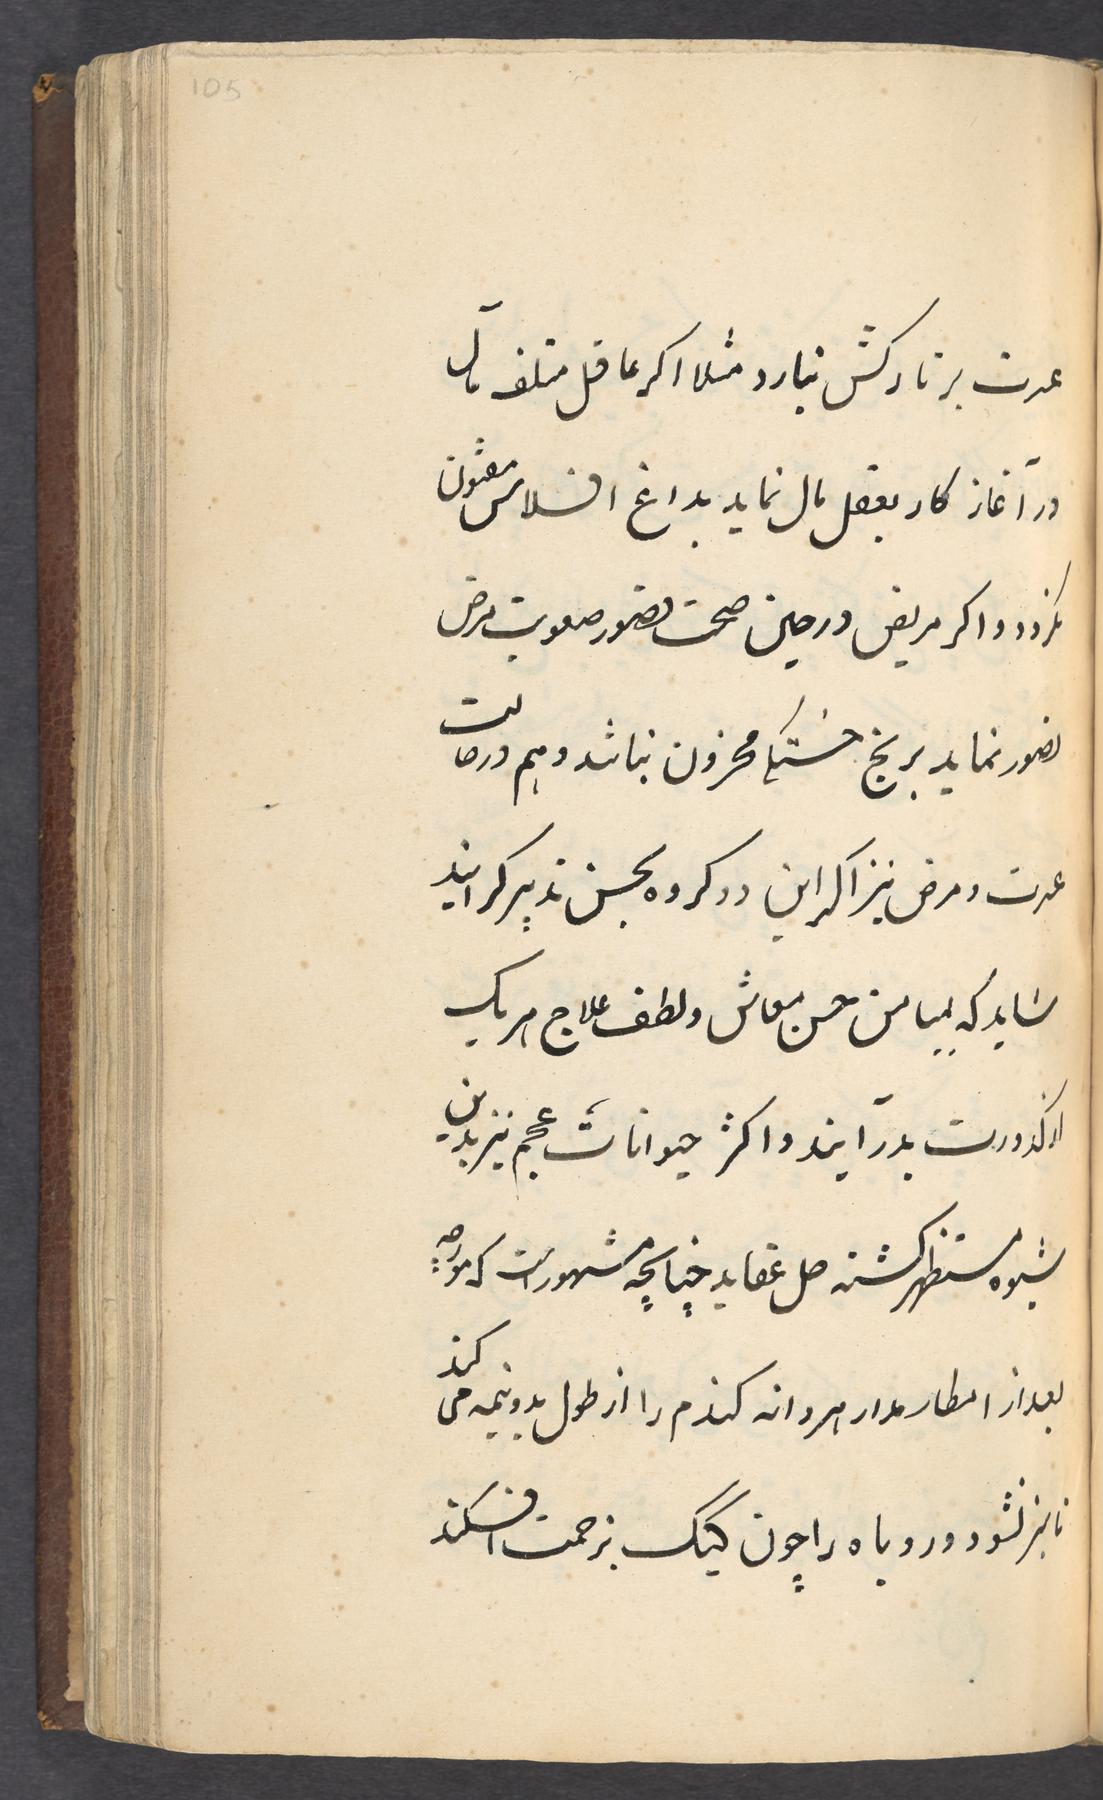 105
عسرت بر تارکش نبارد مثلا اکر عاقل متلف مآل
در آغاز کار بعقل مال نماید بداغ افلاس مفتون
نکردد و اکر مریض در حین صحت تصور صعوبت مرض
تصور نماید برنج خستکی محزون نباشد و هم در حالت
عسرت و مرض نیز اکر این دو کروه بحسن تدبیر کرایند
شاید که بمیامن حسن معاش و لطف علاج هر یک
از کدورت بدر آیند و اکثر حیوانات عجم نیز بدین
شیوه مستظهر کشته حل عقاید چنانچه مشهور است که مورچه
بعد از امطار مدار هر دانه کندم را از طول بدو نیمه می کند
تا سبز نشود و روباه را چون کیک بزحمت افکند